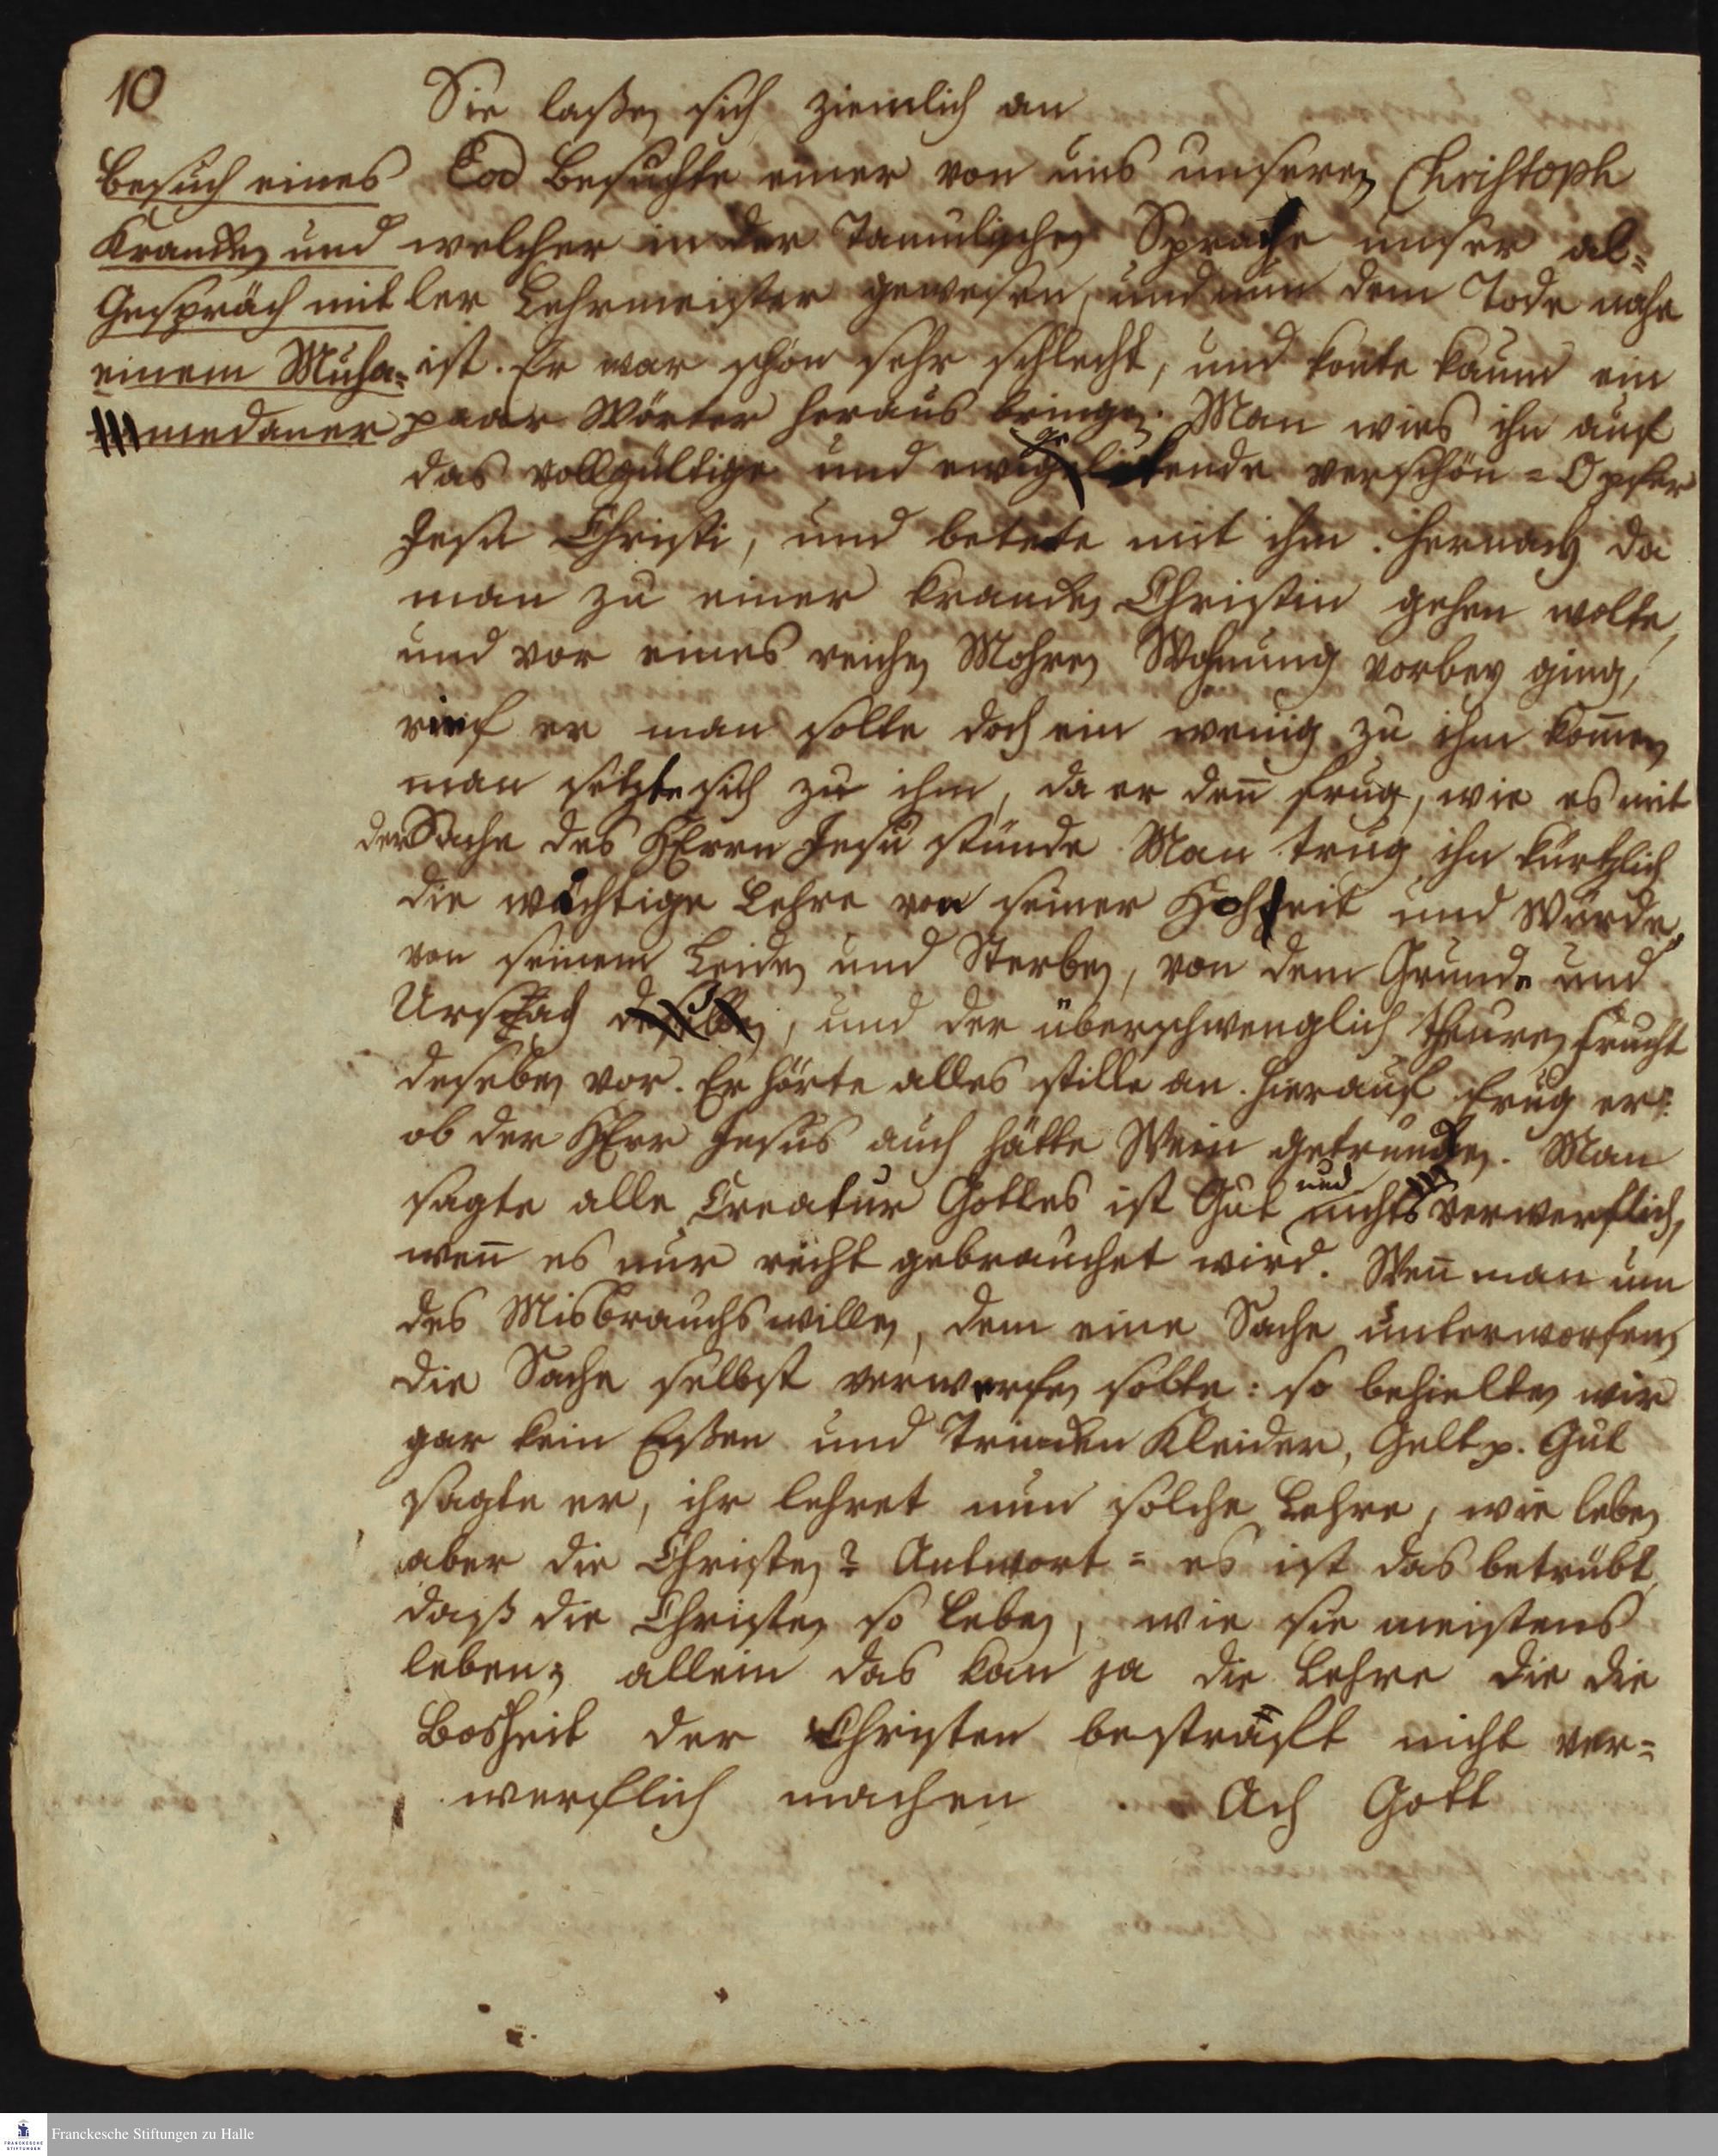 10
Sie laßen sich ziemlich an
Besuch eines
Krancken und
Gespräch mit
einem Muha-
medaner
Eod Besuchte einer von uns unseren Christoph
welcher in der Tamulischen Sprache unser al-
ler Lehrmeister gewesen, und nun dem Tode nahe
ist. Er war schon sehr schlecht, und konte kaum ein
paar Wörter heraus bringen. Man wies ihn auf
das vollgültige und ewig geltende versöhn-Opfer
Jesu Christi, und betete mit ihm. Hernach da
man zu einer krancken Christin gehen wolte,
und vor eines reichen Mohren Wohnung vorbey ging,
rief er man solte doch ein wenig zu ihm kom̄en
man setzte sich zu ihm, da er den̄ frug, wie es mit
der Sache des HErrn Jesu stünde. Man trug ihn kürtzlich
die wichtige Lehre von seiner Hohheit und Würde,
von seinem Leiden und Sterben, von dem Grunde und
Ursach , und der überschwenglich theuren Frucht
deßelben vor. Er hörte alles stille an. Hierauf frug er:
ob der HErr Jesus auch hätte Wein getruncken. Man
sagte alle Creatur Gottes ist Gut und nichts verwerflich,
wen̄ es nur recht gebrauchet wird. Wen̄ man um
des Misbrauchs willen, dem eine Sache unterworfen
die Sache selbst verwerfen solte: so behielten wir
gar kein Eßen und Trincken Kleider, Gelt p. Gut
sagte er, ihr lehret nun solche Lehre, wie leben
aber die Christen? Antwort = es ist das betrübt,
daß die Christen so leben, wie sie meistens
leben; allein das kan ja die Lehre die die
Bosheit der Christen bestraft nicht ver-
werflich machen Ach Gott
Franckesche Stiftungen zu Halle